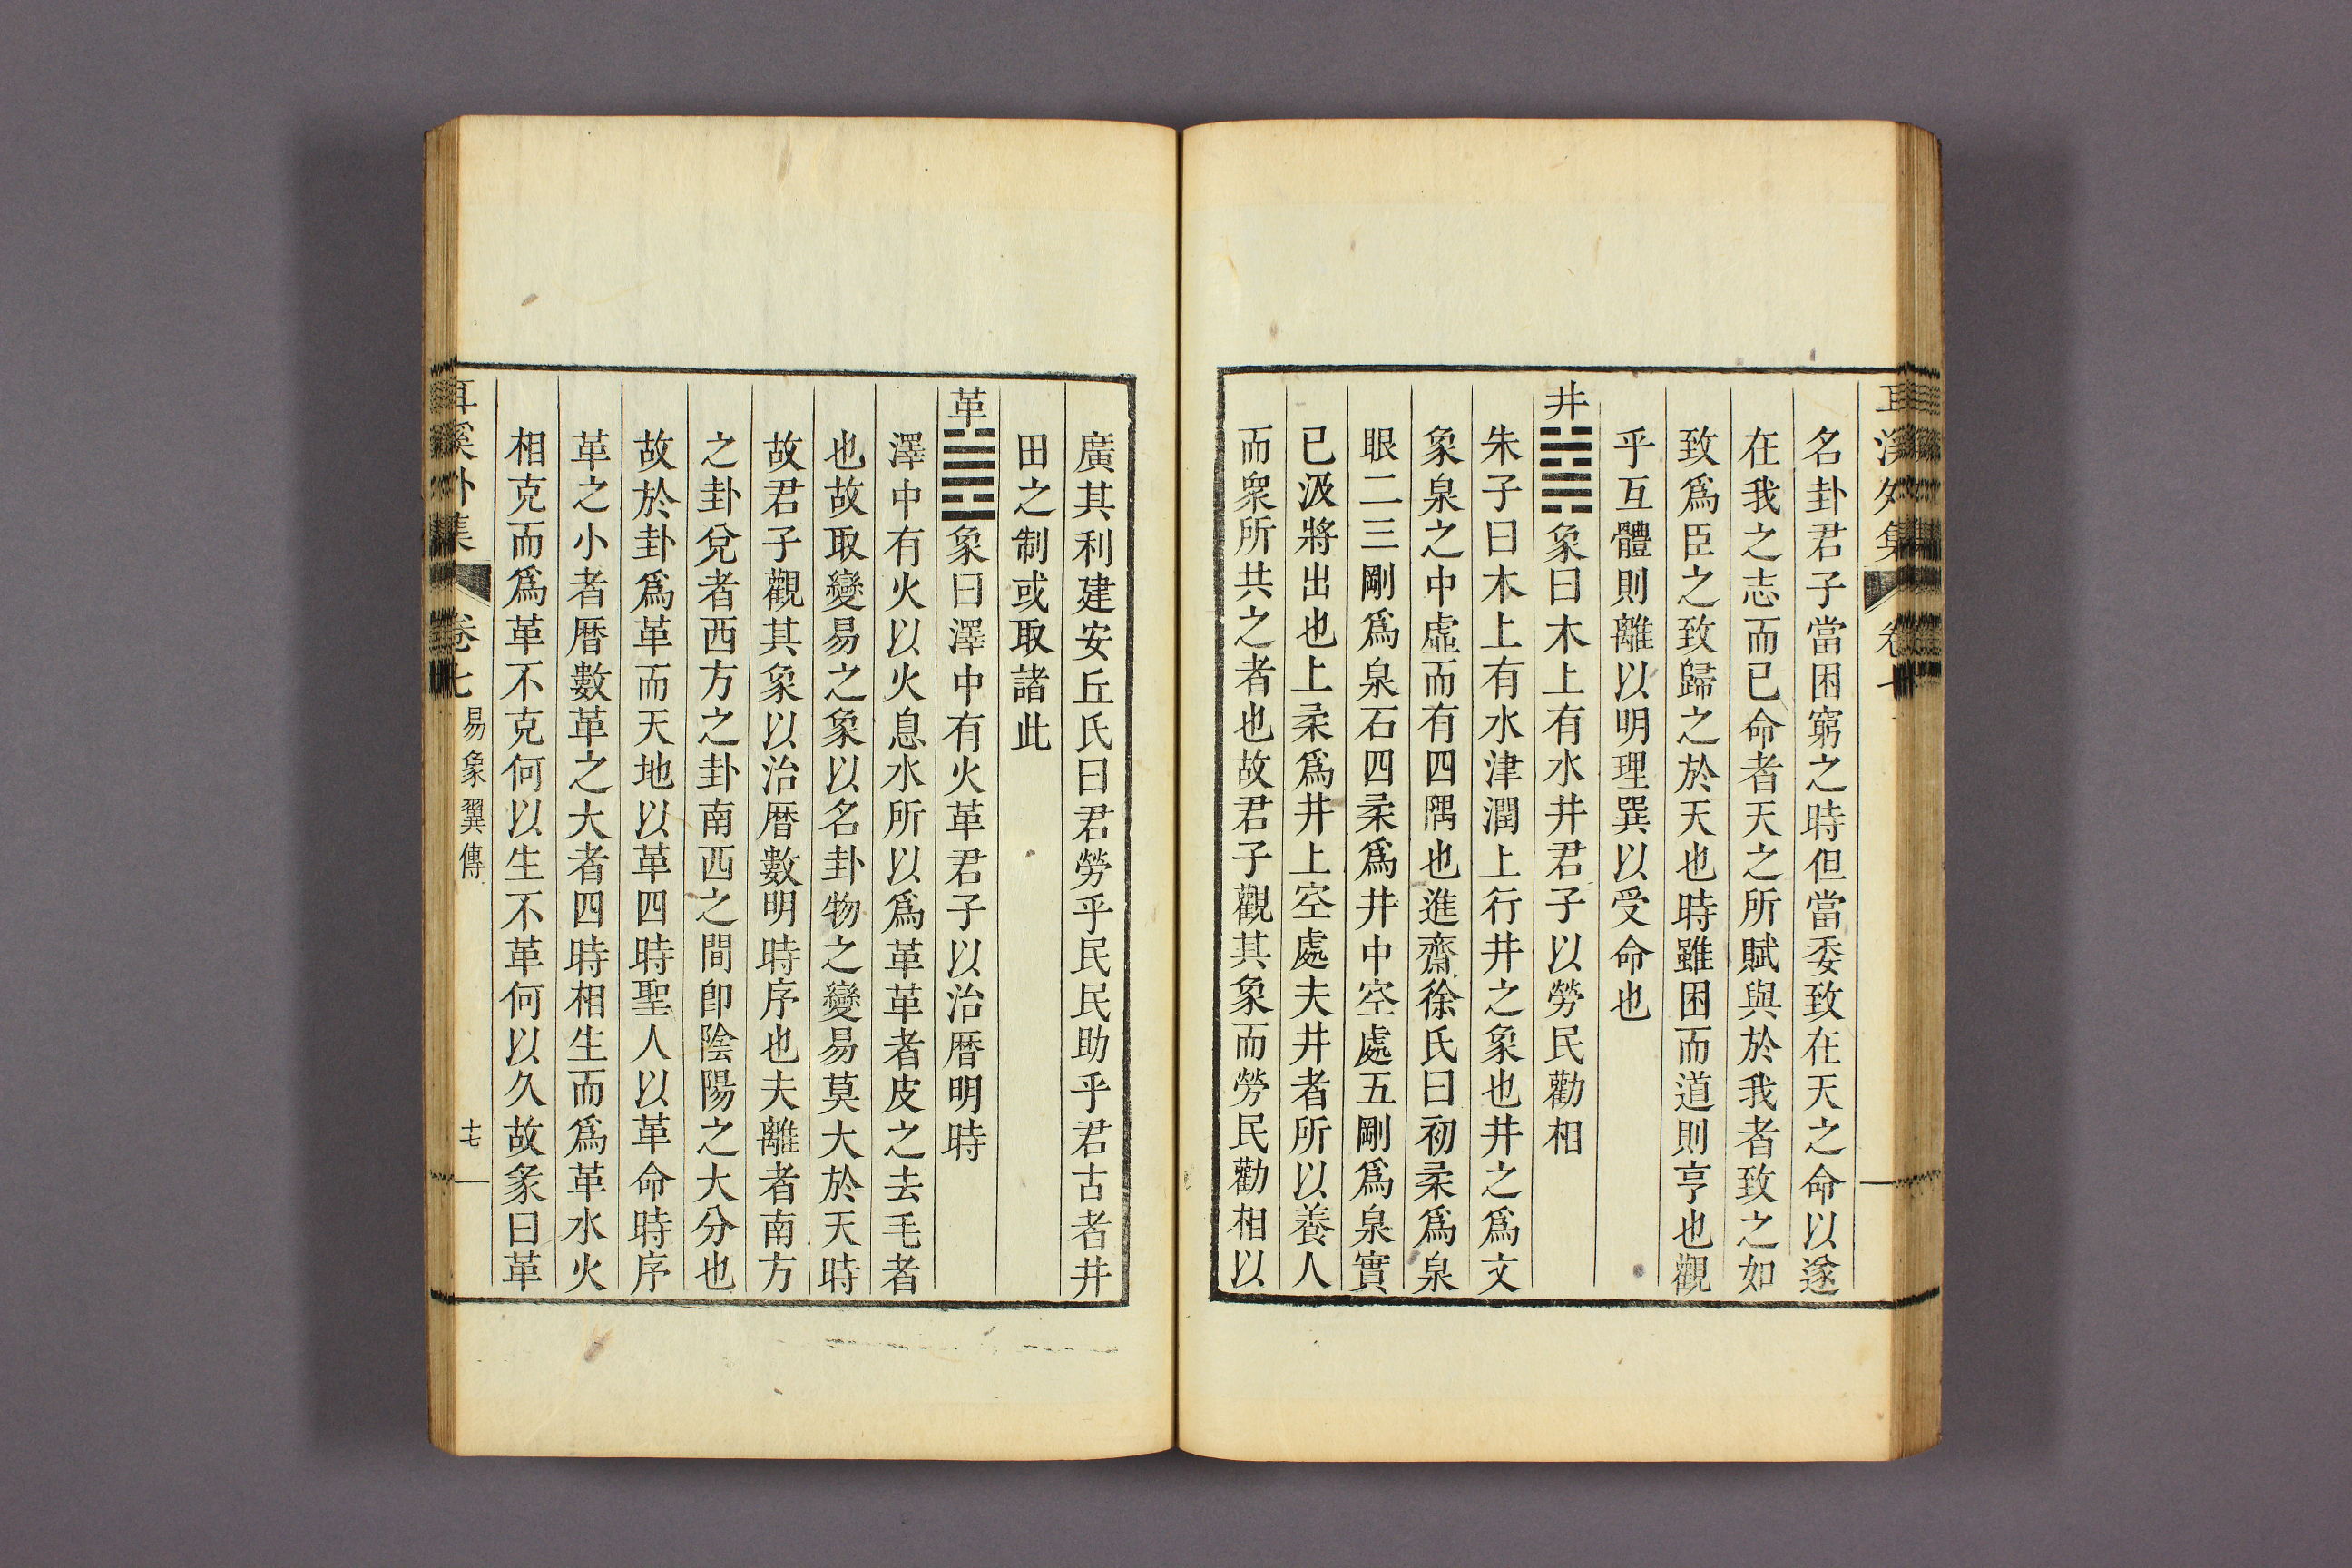 耳溪外集 卷七
名卦君子當困窮之時但當委致在天之命以遂
在我之志而已命者天之所賦與於我者致之如
致爲臣之致歸之於天也時雖困而道則亨也觀
乎互體則離以明理巽以受命也
井䷯象曰木上有水井君子以勞民勸相
朱子曰木上有水津潤上行井之象也井之爲文
象泉之中虛而有四隅也進齋徐氏曰初柔爲泉
眼二三剛爲泉石四柔爲井中空處五剛爲泉實
已汲將出也上柔爲井上空處夫井者所以養人
而衆所共之者也故君子觀其象而勞民勸相以
廣其利建安丘氏曰君勞乎民民助乎君古者井
田之制或取諸此
革䷰象曰澤中有火革君子以治曆明時
澤中有火以火息水所以爲革革者皮之去毛者
也故取變易之象以名卦物之變易莫大於天時
故君子觀其象以治曆數明時序也夫離者南方
之卦兌者西方之卦南西之間卽陰陽之大分也
故於卦爲革而天地以革四時聖人以革命時序
革之小者曆數革之大者四時相生而爲革水火
相克而爲革不克何以生不革何以久故彖曰革
耳溪外集 卷七 易象翼傳 十七